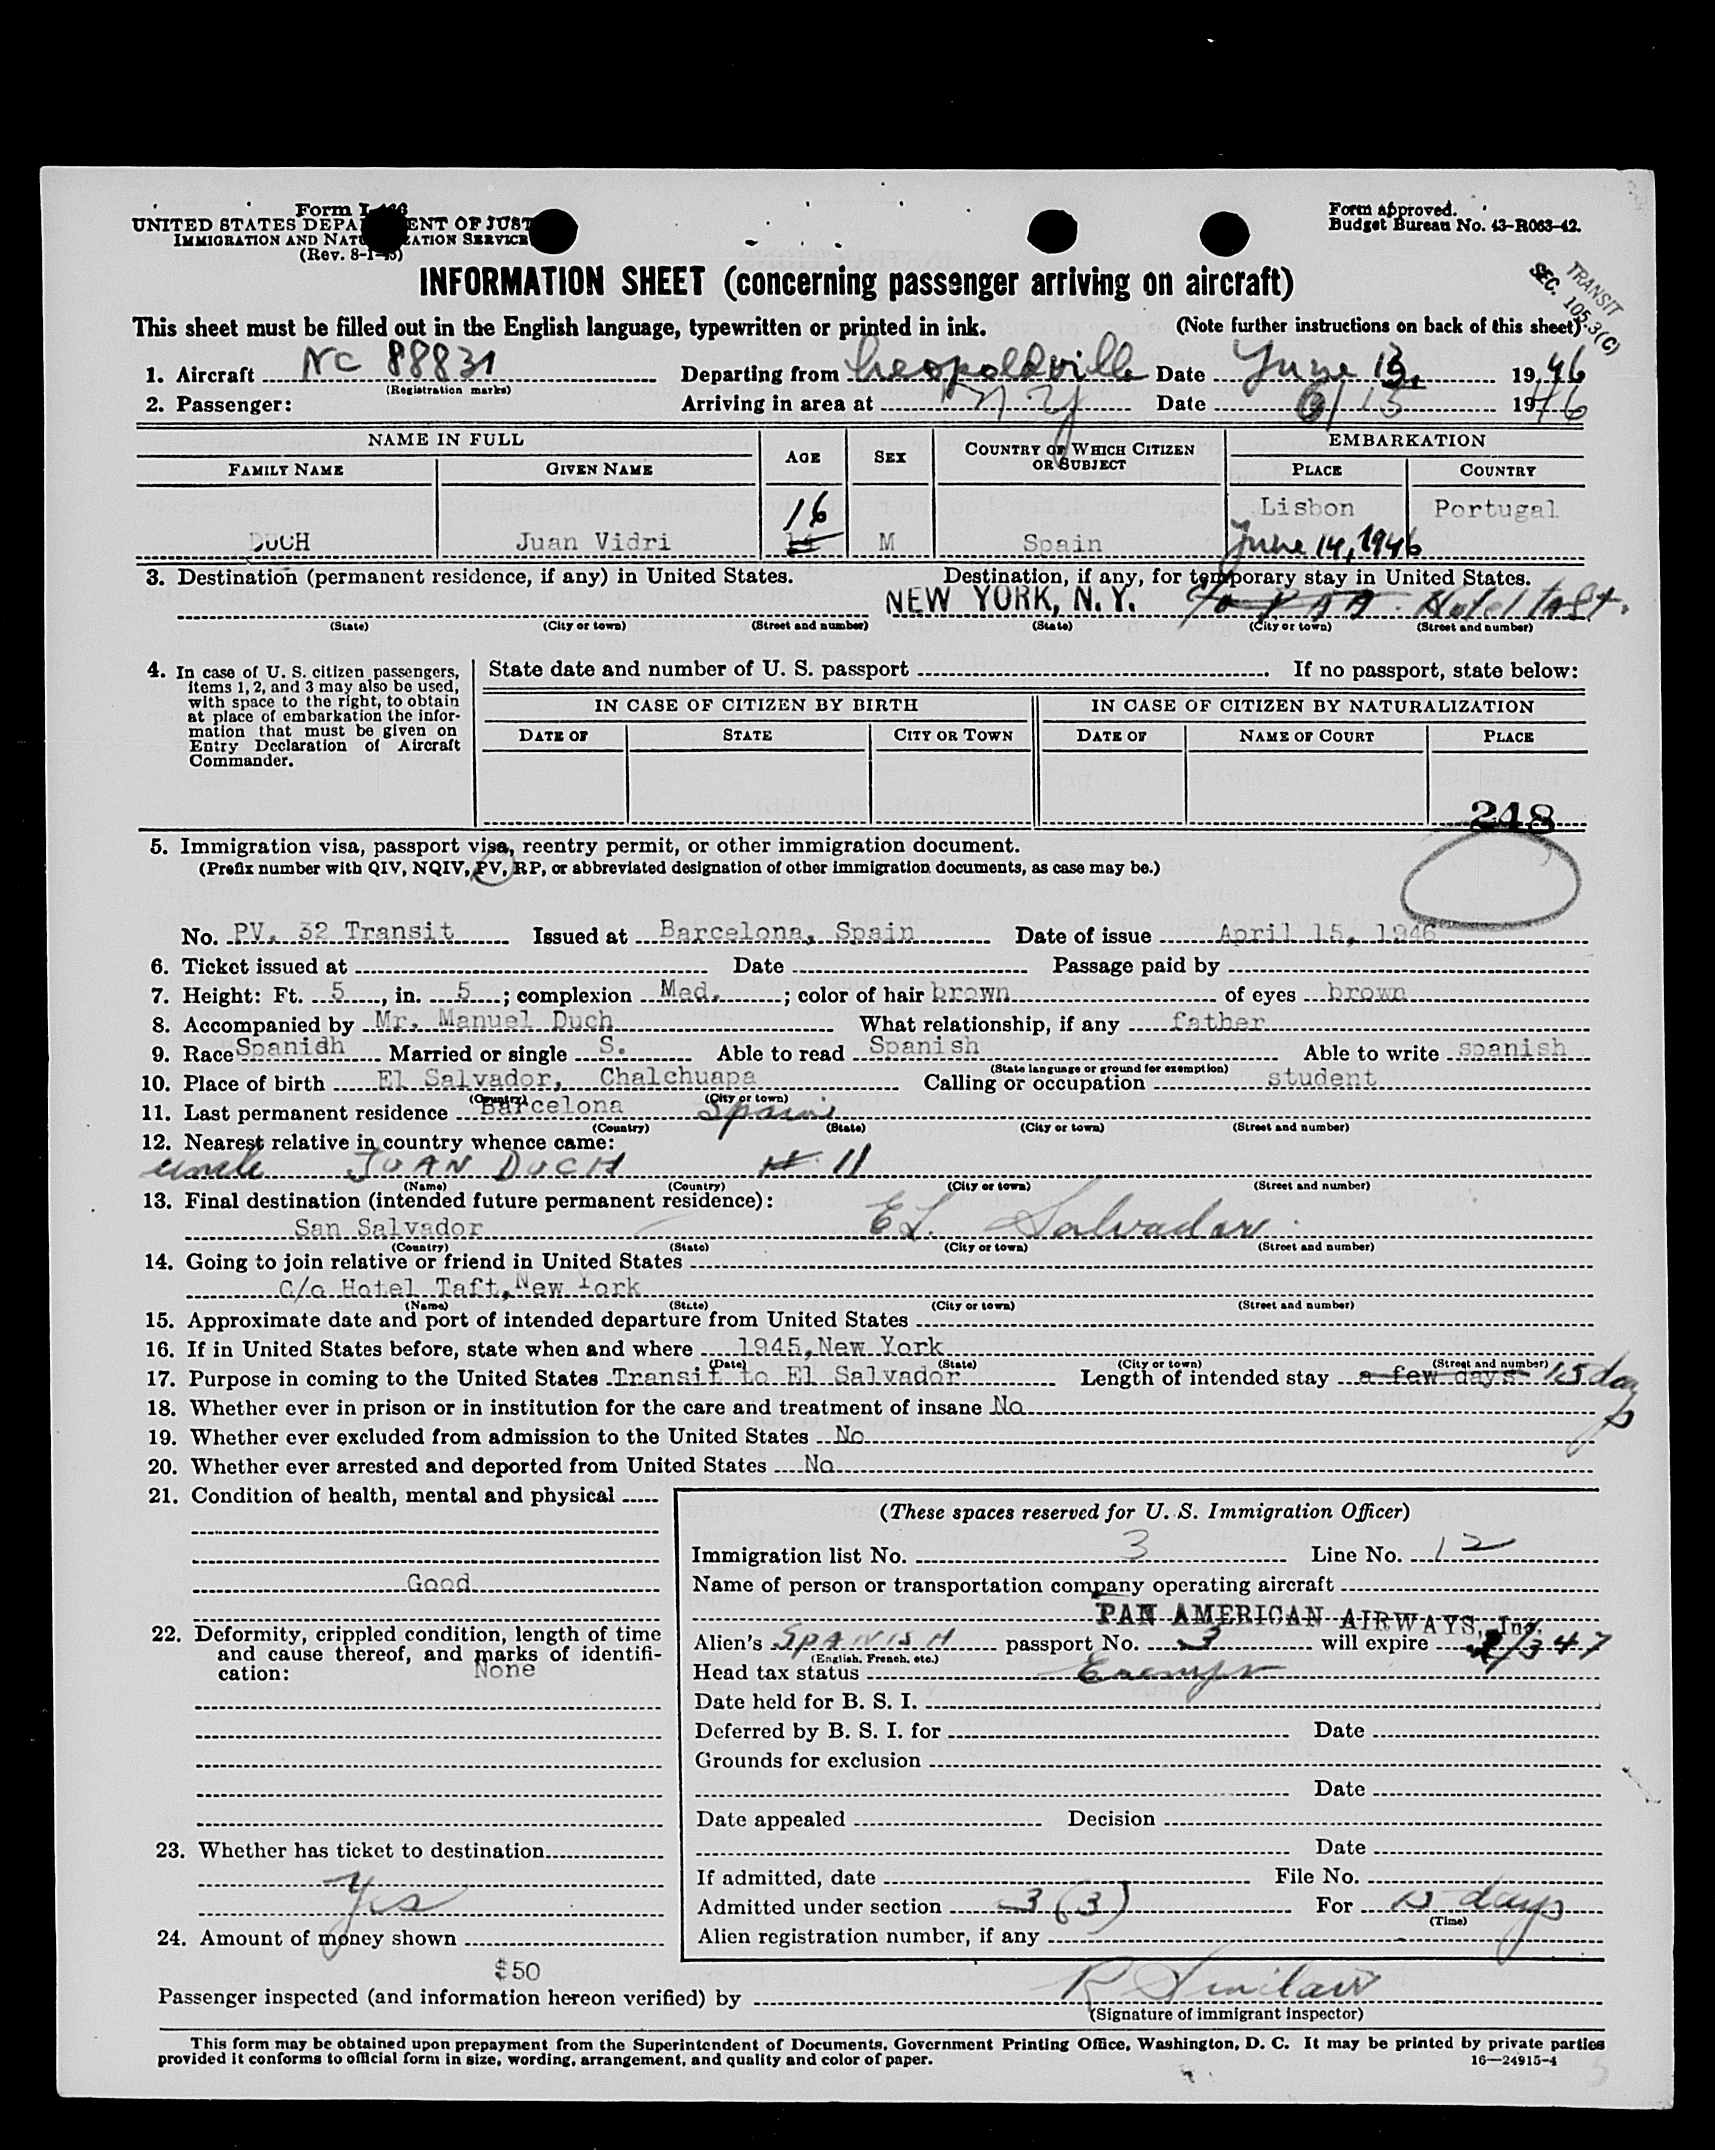 Form I-466
UNITED STATES DEPA ENT OF JUST
IMMIGRATION AND NATU ZATION SERVICE
(Rev. 8-1-45)
Form approved.
Budget Bureau No. 43-R063-42.
INFORMATION SHEET (concerning passenger arriving on aircraft)
TRANSIT
SEC. 105.3(C)
This sheet must be filled out in the English language, typewritten or printed in ink. (Note further instructions on back of this sheet)
1. Aircraft NC 88831 Departing from Leopoldville Date June 13, 1946
(Registration marks)
2. Passenger: Arriving in area at NY Date 6/15 1946
NAME IN FULL AGE SEX COUNTRY OF WHICH CITIZEN OR SUBJECT EMBARKATION
FAMILY NAME GIVEN NAME PLACE COUNTRY
16 Lisbon Portugal
DUCH Juan Vidri 14 M Spain June 14, 1946
3. Destination (permanent residence, if any) in United States. Destination, if any, for temporary stay in United States.
NEW YORK, N.Y. c/o PAA. Hotel Taft.
(State) (City or town) (Street and number) (State) (City or town) (Street and number)
4. In case of U. S. citizen passengers,
items 1, 2, and 3 may also be used,
with space to the right, to obtain
at place of embarkation the infor-
mation that must be given on
Entry Declaration of Aircraft
Commander.
State date and number of U. S. passport If no passport, state below:
IN CASE OF CITIZEN BY BIRTH IN CASE OF CITIZEN BY NATURALIZATION
DATE OF STATE CITY OR TOWN DATE OF NAME OF COURT PLACE
248
5. Immigration visa, passport visa, reentry permit, or other immigration document.
(Prefix number with QIV, NQIV, PV, RP, or abbreviated designation of other immigration documents, as case may be.)
No. PV. 32 Transit Issued at Barcelona, Spain Date of issue April 15, 1946
6. Ticket issued at Date Passage paid by
7. Height: Ft. 5, in. 5; complexion Med.; color of hair brown of eyes brown
8. Accompanied by Mr. Manuel Duch What relationship, if any father
9. Race Spanidh Married or single S. Able to read Spanish Able to write spanish
(State language or ground for exemption)
10. Place of birth El Salvador, Chalchuapa Calling or occupation student
(Country) (City or town)
11. Last permanent residence Barcelona Spain
(Country) (State) (City or town) (Street and number)
12. Nearest relative in country whence came:
uncle JUAN DUCH # 11
(Name) (Country) (City or town) (Street and number)
13. Final destination (intended future permanent residence):
San Salvador EL Salvador
(Country) (State) (City or town) (Street and number)
14. Going to join relative or friend in United States
C/o Hotel Taft, New York
(Name) (State) (City or town) (Street and number)
15. Approximate date and port of intended departure from United States
16. If in United States before, state when and where 1945, New York
(Date) (State) (City or town) (Street and number)
17. Purpose in coming to the United States Transit to El Salvador Length of intended stay a few days 15 days
18. Whether ever in prison or in institution for the care and treatment of insane No
19. Whether ever excluded from admission to the United States No
20. Whether ever arrested and deported from United States No
21. Condition of health, mental and physical
Good
22. Deformity, crippled condition, length of time
and cause thereof, and marks of identifi-
cation: None
23. Whether has ticket to destination
Yes
24. Amount of money shown
$50
(These spaces reserved for U. S. Immigration Officer)
Immigration list No. 3 Line No. 12
Name of person or transportation company operating aircraft
PAN AMERICAN AIRWAYS, Inc.
Alien's SPANISH passport No. 3 will expire 2/3 47
(English, French, etc.)
Head tax status Exempt
Date held for B. S. I.
Deferred by B. S. I. for Date
Grounds for exclusion
Date
Date appealed Decision
Date
If admitted, date File No.
Admitted under section 3(3) For 15 days
(Time)
Alien registration number, if any
Passenger inspected (and information hereon verified) by
(Signature of immigrant inspector)
This form may be obtained upon prepayment from the Superintendent of Documents, Government Printing Office, Washington, D. C. It may be printed by private parties
provided it conforms to official form in size, wording, arrangement, and quality and color of paper. 16—24915-4